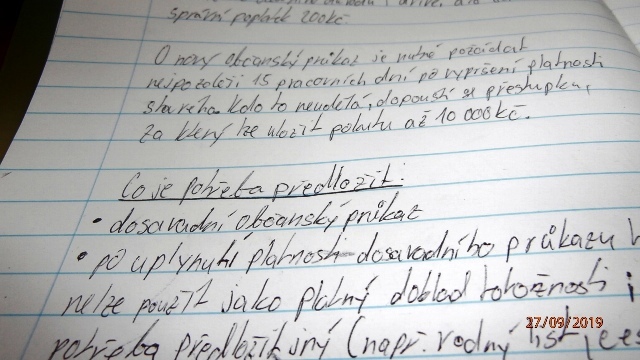 správní poplatek 200kč.
O nový občanský průkaz je nutné požádat
nejpozději 15 pracovních dní po vypršení platnosti
starého. Kdo to neudělá, dopouští se přestupku,
za který lze uložit pokutu až 10 000kč.
Co je potřeba předložit:
• dosavadní občanský průkaz
• po uplynutí platnosti dosavadního průkazu
nelze použít jako platný doklad totožnosti i
potřeba předložit jiný (např. rodný list,
27/09/2019